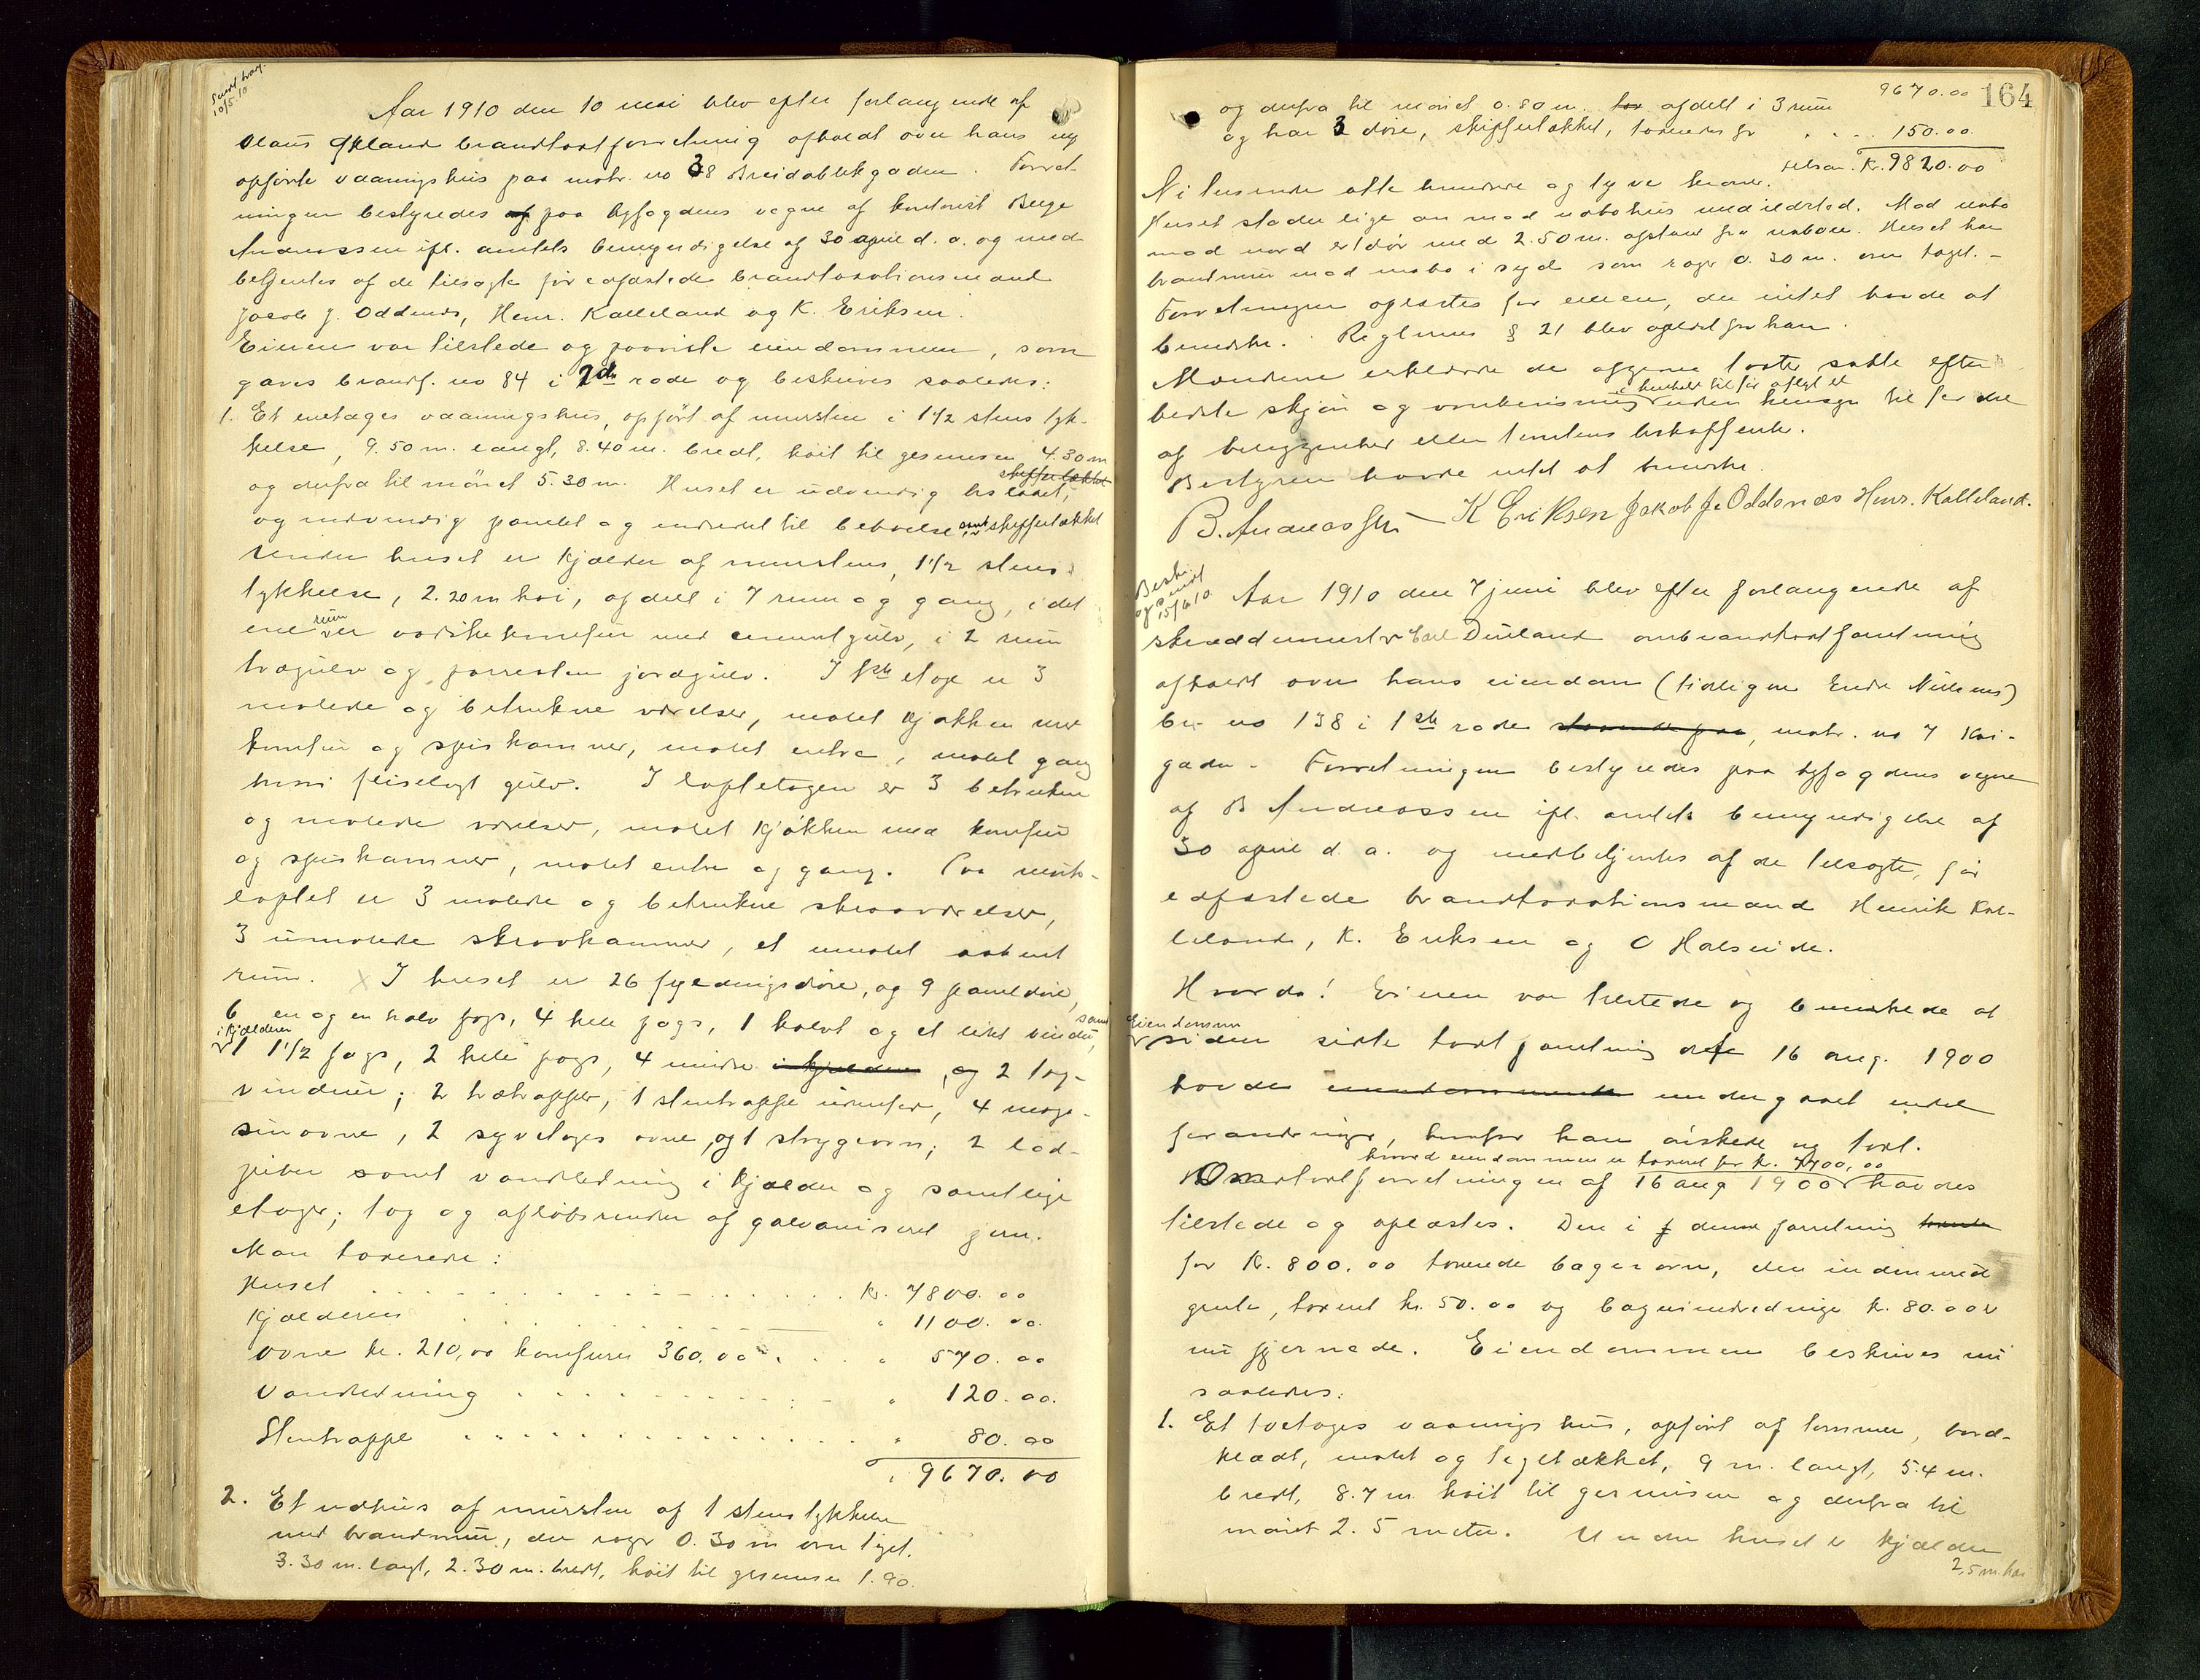 Sendt
10/5.10
Aar 1910 den 10 mai blev efter forlangende af
Olaus Økland brandtaxtforretning afholdt over hans ny
opførte vaaningshus paa matr. no 38 Breidablikgaden. Forret-
ningen bestyredes af paa byfogdens vegne af kontorist Berge
Andreassen ifl. amtets bemyndigelse af 30 april d. a. og med
betjentes af de tilsagte før edfæstede brandtaxationsmænd
Jacob J. Oddenes, Henr. Kalleland og K. Eriksen.
Eieren var tilstede og paaviste eiendommen, som
gaves brandf. no 84 i 2de rode og beskrives saaledes:
1. Et enetages vaaningshus, opført af mursten i 1 1/2 stens tyk-
kelse, 9.50 m. langt, 8.40 m. bredt, høit til gesimsen 4.30 m
og derfra til mønet 5.30 m. Huset er udvendig skiffertækket
og indvendig panelt og indredet til beboelse, samt skiffertækket
Under huset er kjælder af murstens, 1 1/2 stens
tykkelse, 2.20 m høi, afdelt i 7 rum og gang, i det
ene rum er vaskekomfur med cementgulv, i 2 rum
trægulv og forresten jordgulv. I 1ste etage er 3
malede og betrukne værelser, malet kjøkken med
komfur og spiskammer, malet entre, malet gang
hvori fliselagt gulv. I loftetagen er 3 betrukne
og malede værelser, malet kjøkken med komfur
og spiskammer, malet entre og gang. Paa mørk-
loftet er 3 malede og betrukne skraaværelser,
3 umalede skraakammer, et umalet aabent
rum. X I huset er 26 fyldningsdøre, og 9 paneldøre,
6 en og en halv fags, 4 hele fags, 1 halvt og et lidet vindu, samt
i kjælderen
1 1 1/2 fags, 2 hele fags, 4 mindre i kjælderen, og 2 tag-
vinduer; 2 trætrapper, 1 stentrappe udenfor, 4 maga-
sinovne, 2 syvetages ovne, og 1 strygeovn; 2 lød-
piber samt vandledning i kjælder og samtlige
etager; tag og afløbsrender af galvaniseret jern.
Man taxerede:
Huset . . . . . . . . . . kr. 7800.00
Kjælderen . . . . . " 1100.00.
Ovne kr. 210,00 komfurer 360.00 . . . " 570.00
Vandledning . . . . . . . " 120.00.
Stentrappe . . . . . . . . " 80.00
9670.00
2. Et udhus af mursten af 1 stens tykkelse
med brandmur, der rager 0.30 m over taget.
3.30 m. langt, 2.30 m. bredt, høit til gesimsen 1.90.
9670.00 164
og derfra til mønet 0.80 m. tax afdelt i 3 rum
og har 3 døre, skiffertækket, taxeredes for . . . 150.00.
tilsam. Kr. 9820.00
Ni tusende otte hundrede og tyve kroner.
Huset støder lige an mod nabohus med ildsted. Mod nabo
mod nord er dør med 2.50 m. afstand fra naboen. Huset har
brandmur mod nabo i syd som rager 0.30 m. over taget. -
Forretningen oplæstes for eieren, der intet havde at
bemerke. Reglernes § 21 blev oplæst for ham.
Mændene erklærede de afgivne taxter satte efter
bedste skjøn og overbevisning i henhold til før aflagt ed uden hensyn til fordel
af beliggenhed eller tomtens beskaffenhed.
Bestyreren havde intet at bemerke.
B. Andreassen K Eriksen Jakob J. Oddenæs Henr. Kalleland.
Besk.
og sendt
15/6 10
Aar 1910 den 7 juni blev efter forlangende af
skræddermester Carl Dueland ombrandtaxtforretning
afholdt over hans eiendom (tidligere Endre Nilsens)
br. no 138 i 1ste rode staaende paa, matr. no 7 Kai-
gaden. Forretningen bestyredes paa byfogdens vegne
af B Andreassen ifl. amtets bemyndigelse af
30 april d. a. og medbetjentes af de tilsagte, før
edfæstede brandtaxationsmænd Henrik Kal-
leland, K. Eriksen og O Halseide.
Hvorda! Eieren var tilstede og bemerkede at
Eiendommen
siden sidste taxtforretning af 16 aug. 1900
havde eiendommen undergaaet endel
forandringer, hvorfor han ønskede ny taxt.
hvorved eiendommen er taxeret for kr. 7700,00
Omtaxtforretningen af 16 aug 1900 havdes
tilstede og oplæstes. Den i denne forretning taxerte
for kr. 800.00 taxerede bagerovn, den indmurede
grute, taxeret kr. 50.00 og bageriindredninge kr. 80.00 er
nu fjernede. Eiendommen beskrives nu
saaledes:
1. Et toetages vaaningshus, opført af tømmer, bord-
klædt, malet og tegltækket, 9 m. langt, 5.4 m.
bredt, 8.7 m høit til gesimsen og derfra til
mønet 2.5 meter. Under huset er kjælder
2,5 m. høi